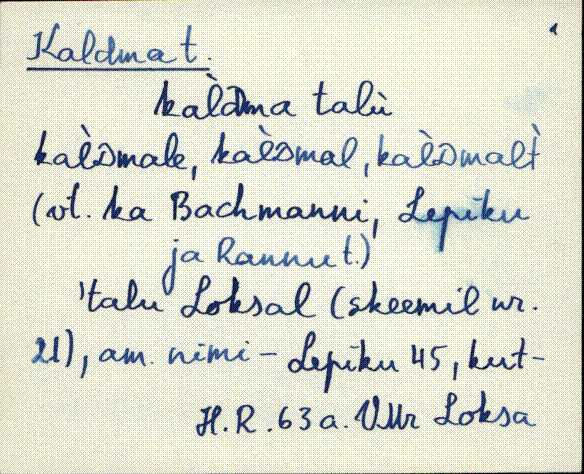 Kaldma t.
kàlDma talù
kàlDmale, kàlDmal, kàlDmalt
(vt. ka Bachmanni, Lepiku
ja Rannu t.)
'talu Loksal (skeemil nr.
21), am. nimi – Lepiku 45, kut-
H.R. 63 a. VMr Loksa